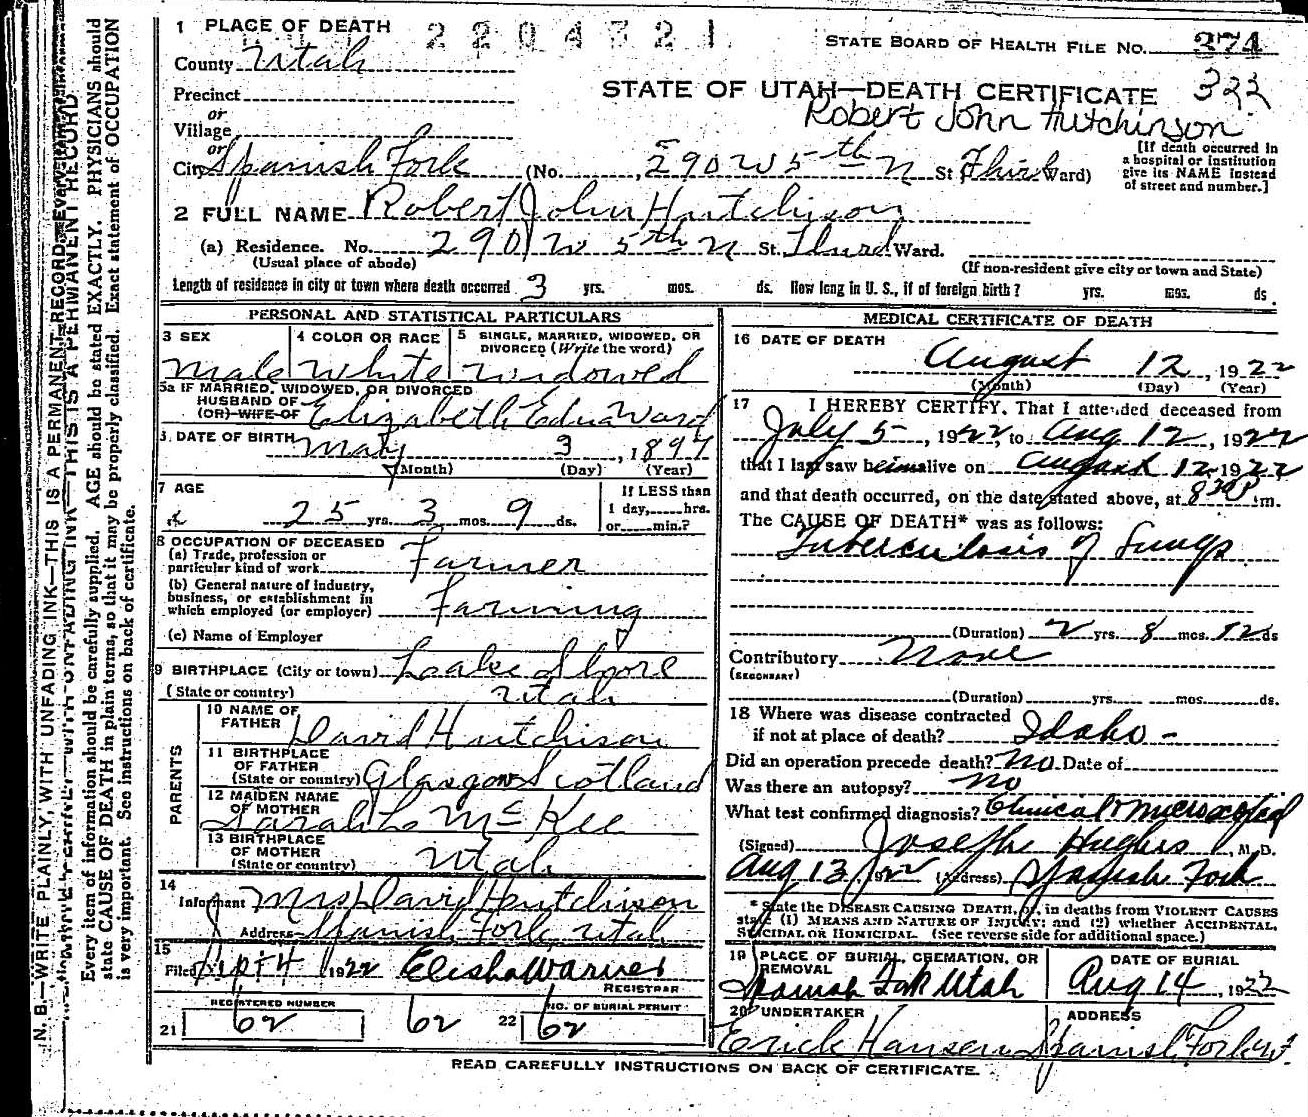 1 PLACE OF DEATH
2204321
STATE BOARD OF HEALTH FILE No. 374
County Utah
322
Precinct
STATE OF UTAH—DEATH CERTIFICATE
or
Robert John Hutchinson
Village
or
City Spanish Fork (No. 290 W 5th N St Third Ward)
[If death occurred in
a hospital or institution
give its NAME instead
of street and number.]
2 FULL NAME Robert John Hutchison
(a) Residence. No. 290 W 5th N St. Third Ward.
(Usual place of abode)
(If non-resident give city or town and State)
Length of residence in city or town where death occurred 3 yrs. mos. ds. How long in U. S., if of foreign birth? yrs. mos. ds.
PERSONAL AND STATISTICAL PARTICULARS
3 SEX
Male
4 COLOR OR RACE
White
5 SINGLE, MARRIED, WIDOWED, OR
DIVORCED (Write the word)
widowed
5a IF MARRIED, WIDOWED, OR DIVORCED
HUSBAND OF
(OR) WIFE OF Elizabeth Edna Ward
DATE OF BIRTH May 3, 1897
(Month) (Day) (Year)
7 AGE
25 yrs. 3 mos. 9 ds.
If LESS than
1 day, hrs.
or min.?
8 OCCUPATION OF DECEASED
(a) Trade, profession or
particular kind of work Farmer
(b) General nature of industry,
business, or establishment in
which employed (or employer) Farming
(c) Name of Employer
9 BIRTHPLACE (City or town) Lake Shore
(State or country) Utah
PARENTS
10 NAME OF
FATHER David Hutchison
11 BIRTHPLACE
OF FATHER
(State or country) Glasgow Scotland
12 MAIDEN NAME
OF MOTHER
Sarah L McKee
13 BIRTHPLACE
OF MOTHER
(State or country) Utah
14
Informant Mrs David Hutchison
Address Spanish Fork, Utah
15
Filed Sept 4 1922 Elisha Warner
REGISTRAR
REGISTERED NUMBER
21 62 62
NO. OF BURIAL PERMIT
22 62
MEDICAL CERTIFICATE OF DEATH
16 DATE OF DEATH
August 12, 1922
(Month) (Day) (Year)
17 I HEREBY CERTIFY, That I attended deceased from
July 5, 1922, to Aug 12, 1922
that I last saw him alive on August 12 1922
and that death occurred, on the date stated above, at 8 30 P m.
The CAUSE OF DEATH* was as follows:
Tuberculosis of Lungs
(Duration) 2 yrs. 8 mos. 12 ds
Contributory None
(SECONDARY)
(Duration) yrs. mos. ds.
18 Where was disease contracted
if not at place of death? Idaho -
Did an operation precede death? No. Date of
Was there an autopsy? No
What test confirmed diagnosis? Clinical &
(Signed) Joseph Hughes, M. D.
Aug 13 1922 (Address) Spanish Fork
* State the DISEASE CAUSING DEATH, or, in deaths from VIOLENT CAUSES
state (1) MEANS AND NATURE OF INJURY; and (2) whether ACCIDENTAL,
SUICIDAL OR HOMICIDAL. (See reverse side for additional space.)
19 PLACE OF BURIAL, CREMATION, OR
REMOVAL
Spanish Fork Utah
DATE OF BURIAL
Aug 14, 1922
20 UNDERTAKER
Erick Hansen
ADDRESS
Spanish Fork
READ CAREFULLY INSTRUCTIONS ON BACK OF CERTIFICATE.
N. B.—WRITE PLAINLY, WITH UNFADING INK—THIS IS A PERMANENT RECORD.
Every item of information should be carefully supplied. AGE should be stated EXACTLY. PHYSICIANS should
state CAUSE OF DEATH in plain terms, so that it may be properly classified. Exact statement of OCCUPATION
is very important. See instructions on back of certificate.